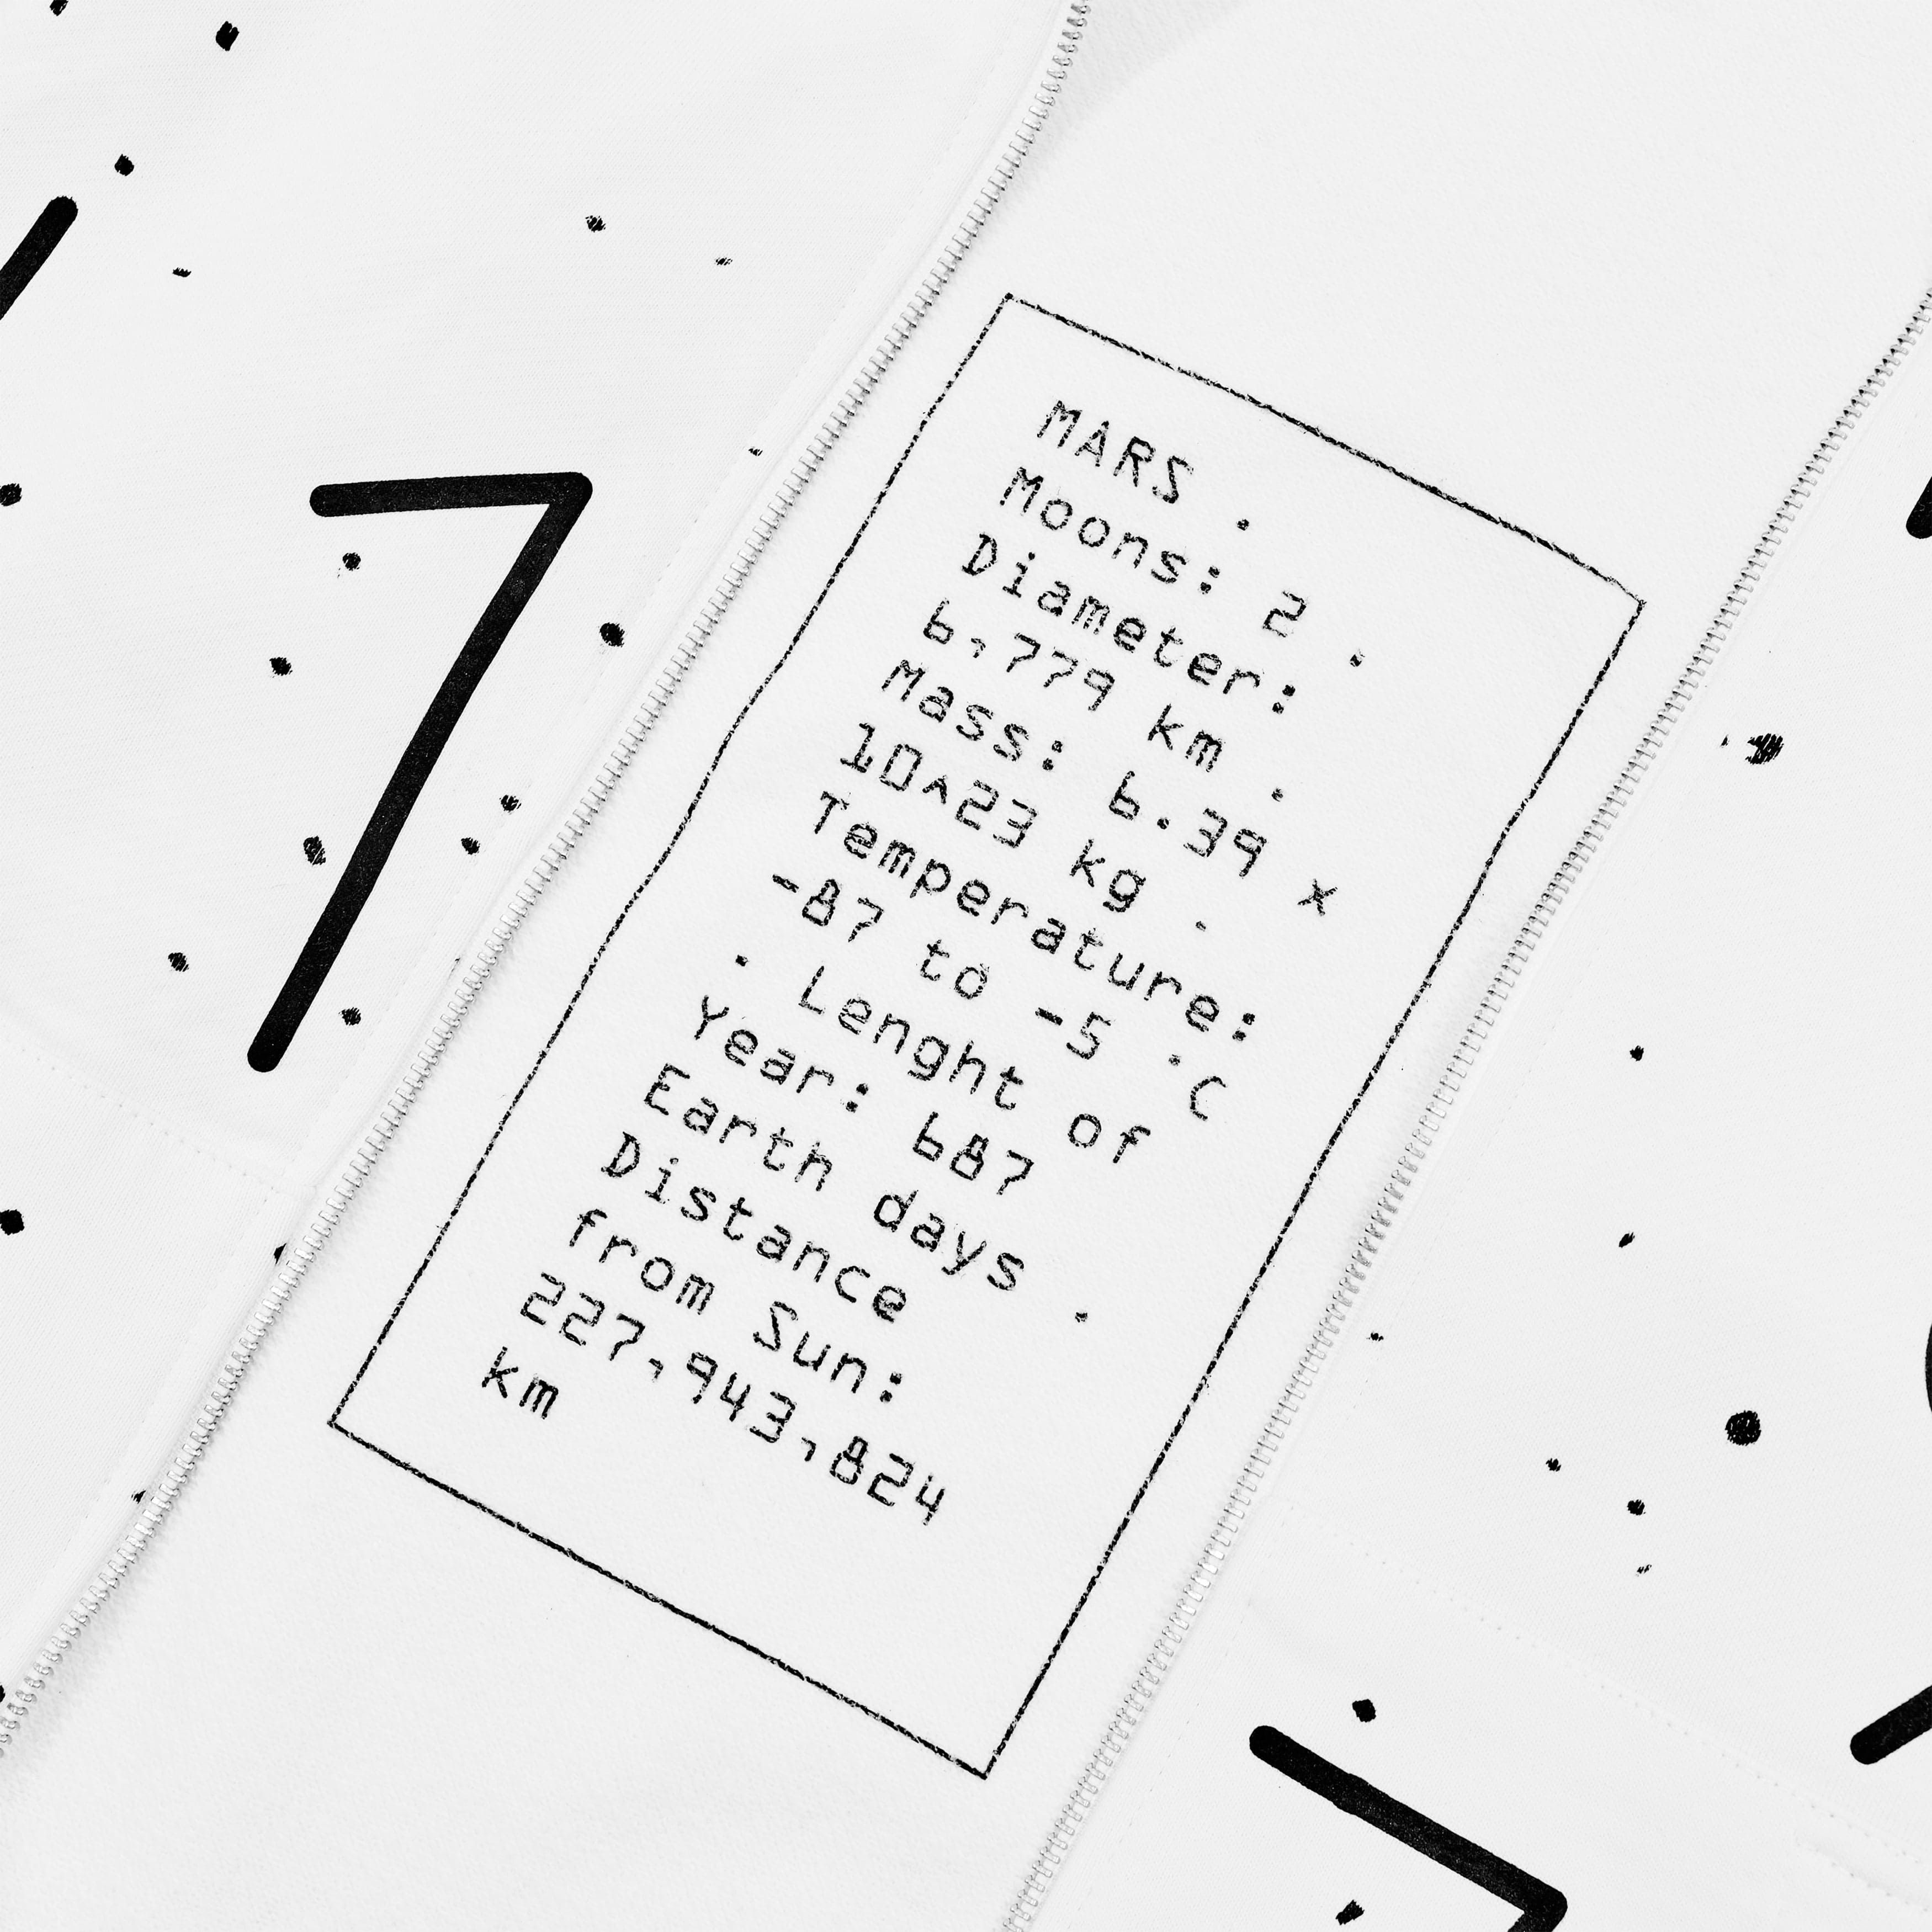 MARS .
Moons: 2 .
Diameter:
6,779 km .
Mass: 6.39 x
10^23 kg .
Temperature:
-87 to -5 °C
. Lenght of
Year: 687
Earth days .
Distance
from Sun:
227,943,824
km